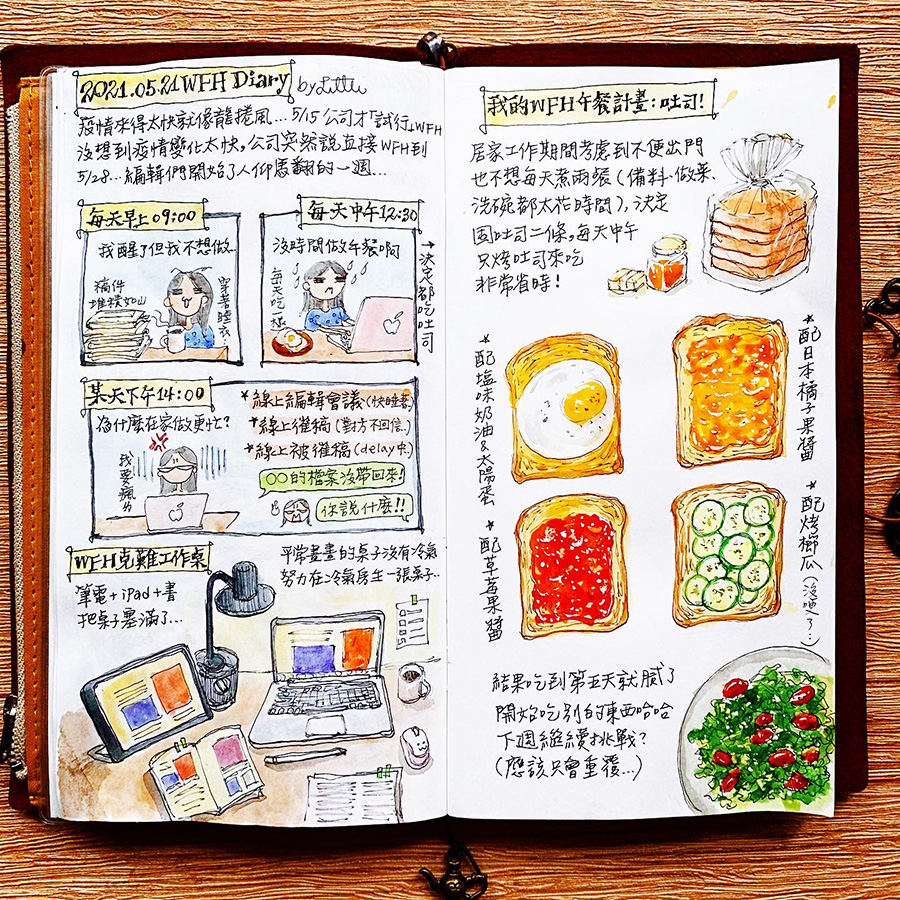 2021.05.21 WFH Diary
by Littu
疫情來得太快就像龍捲風...5/15公司才試行WFH
沒想到疫情變化太快,公司突然說直接WFH到
5/28...編輯們開始了人仰馬翻的一週...
每天早上09:00
我醒了但我不想做...
稿件
堆積如山
穿著睡衣...
每天中午12:30
沒時間做午餐啊
每天吃一樣
→決定都吃吐司
某天下午14:00
為什麼在家做更忙?
我要瘋了
*線上編輯會議(快睡著)
*線上催稿(對方不回信)
*線上被催稿(delay中)
○○的檔案沒帶回來!
你說什麼!!
WFH克難工作桌
平常畫畫的桌子沒有冷氣
努力在冷氣房生一張桌子...
筆電+iPad+書
把桌子塞滿了...
我的WFH午餐計畫:吐司!
居家工作期間考慮到不便出門
也不想每天煮兩餐(備料、做菜、
洗碗都太花時間),決定
囤吐司二條,每天中午
只烤吐司來吃
非常省時!
*配塩味奶油&太陽蛋
*配日本橘子果醬
*配草莓果醬
*配烤櫛瓜(沒哽了...)
結果吃到第五天就膩了
開始吃別的東西哈哈
下週繼續挑戰?
(應該只會重複...)